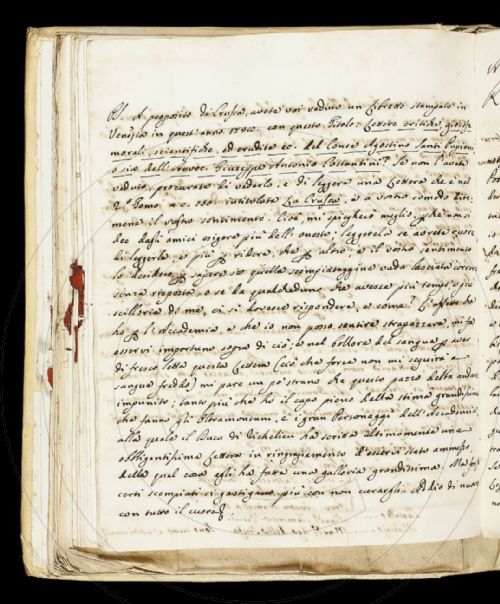 PS. A proposito di Crusca, avete voi veduto un Libretto stampato in
Venezia in quest'anno con questo Titolo: Lettere critiche, giocose,
morali, scientifiche, ed erudite ec. del Conte Agostino Santi Pupieni
o sia dell'Avvoc. Giuseppe Antonio Costantini? Se non l'avete
veduto, procurate di vederlo, e di leggere una Lettera che è nel
Tomo a c. intitolata La Crusca, e a vostro comodo dite-
mene il vostro sentimento. Cioè mi spiegherò meglio, non si
dee dagli amici esigere più dell'onesto: leggerela se avrete cuore
di leggerla, e più ridere, che altro: e il vostro sentimento
lo desidero sapere se quella scempiataggine vada lasciata correre
senza risposta, o se da qualcheduno che avesse più tempo, e più
di me, vi si dovesse rispondere, e come? L'affetto che
ho l'Accademia, e che io non posso sentire strapazzare, mi fa
esservi importuno sopra di ciò, e nel bollore del sangue aver
di fresco letta questa Lettera (ciò che forse non mi seguirà a
sangue freddo) mi pare un po' strano che questo pazzo debba andare
impunito; tanto più che ho il capo pieno della stima grandissima
che fanno gli Oltramontani, e i gran Personaggi dell'Accademia
alla quale il Duca di Richelieu ha scritto ultimamente una
obbligantissima Lettera in ringraziamento d'esservi stato ammesso,
della qual cosa egli ha fatta una galloria grandissima. Ma
certi scempiati si gastigano più con non curargli. Addio di nuovo
con tutto il cuore